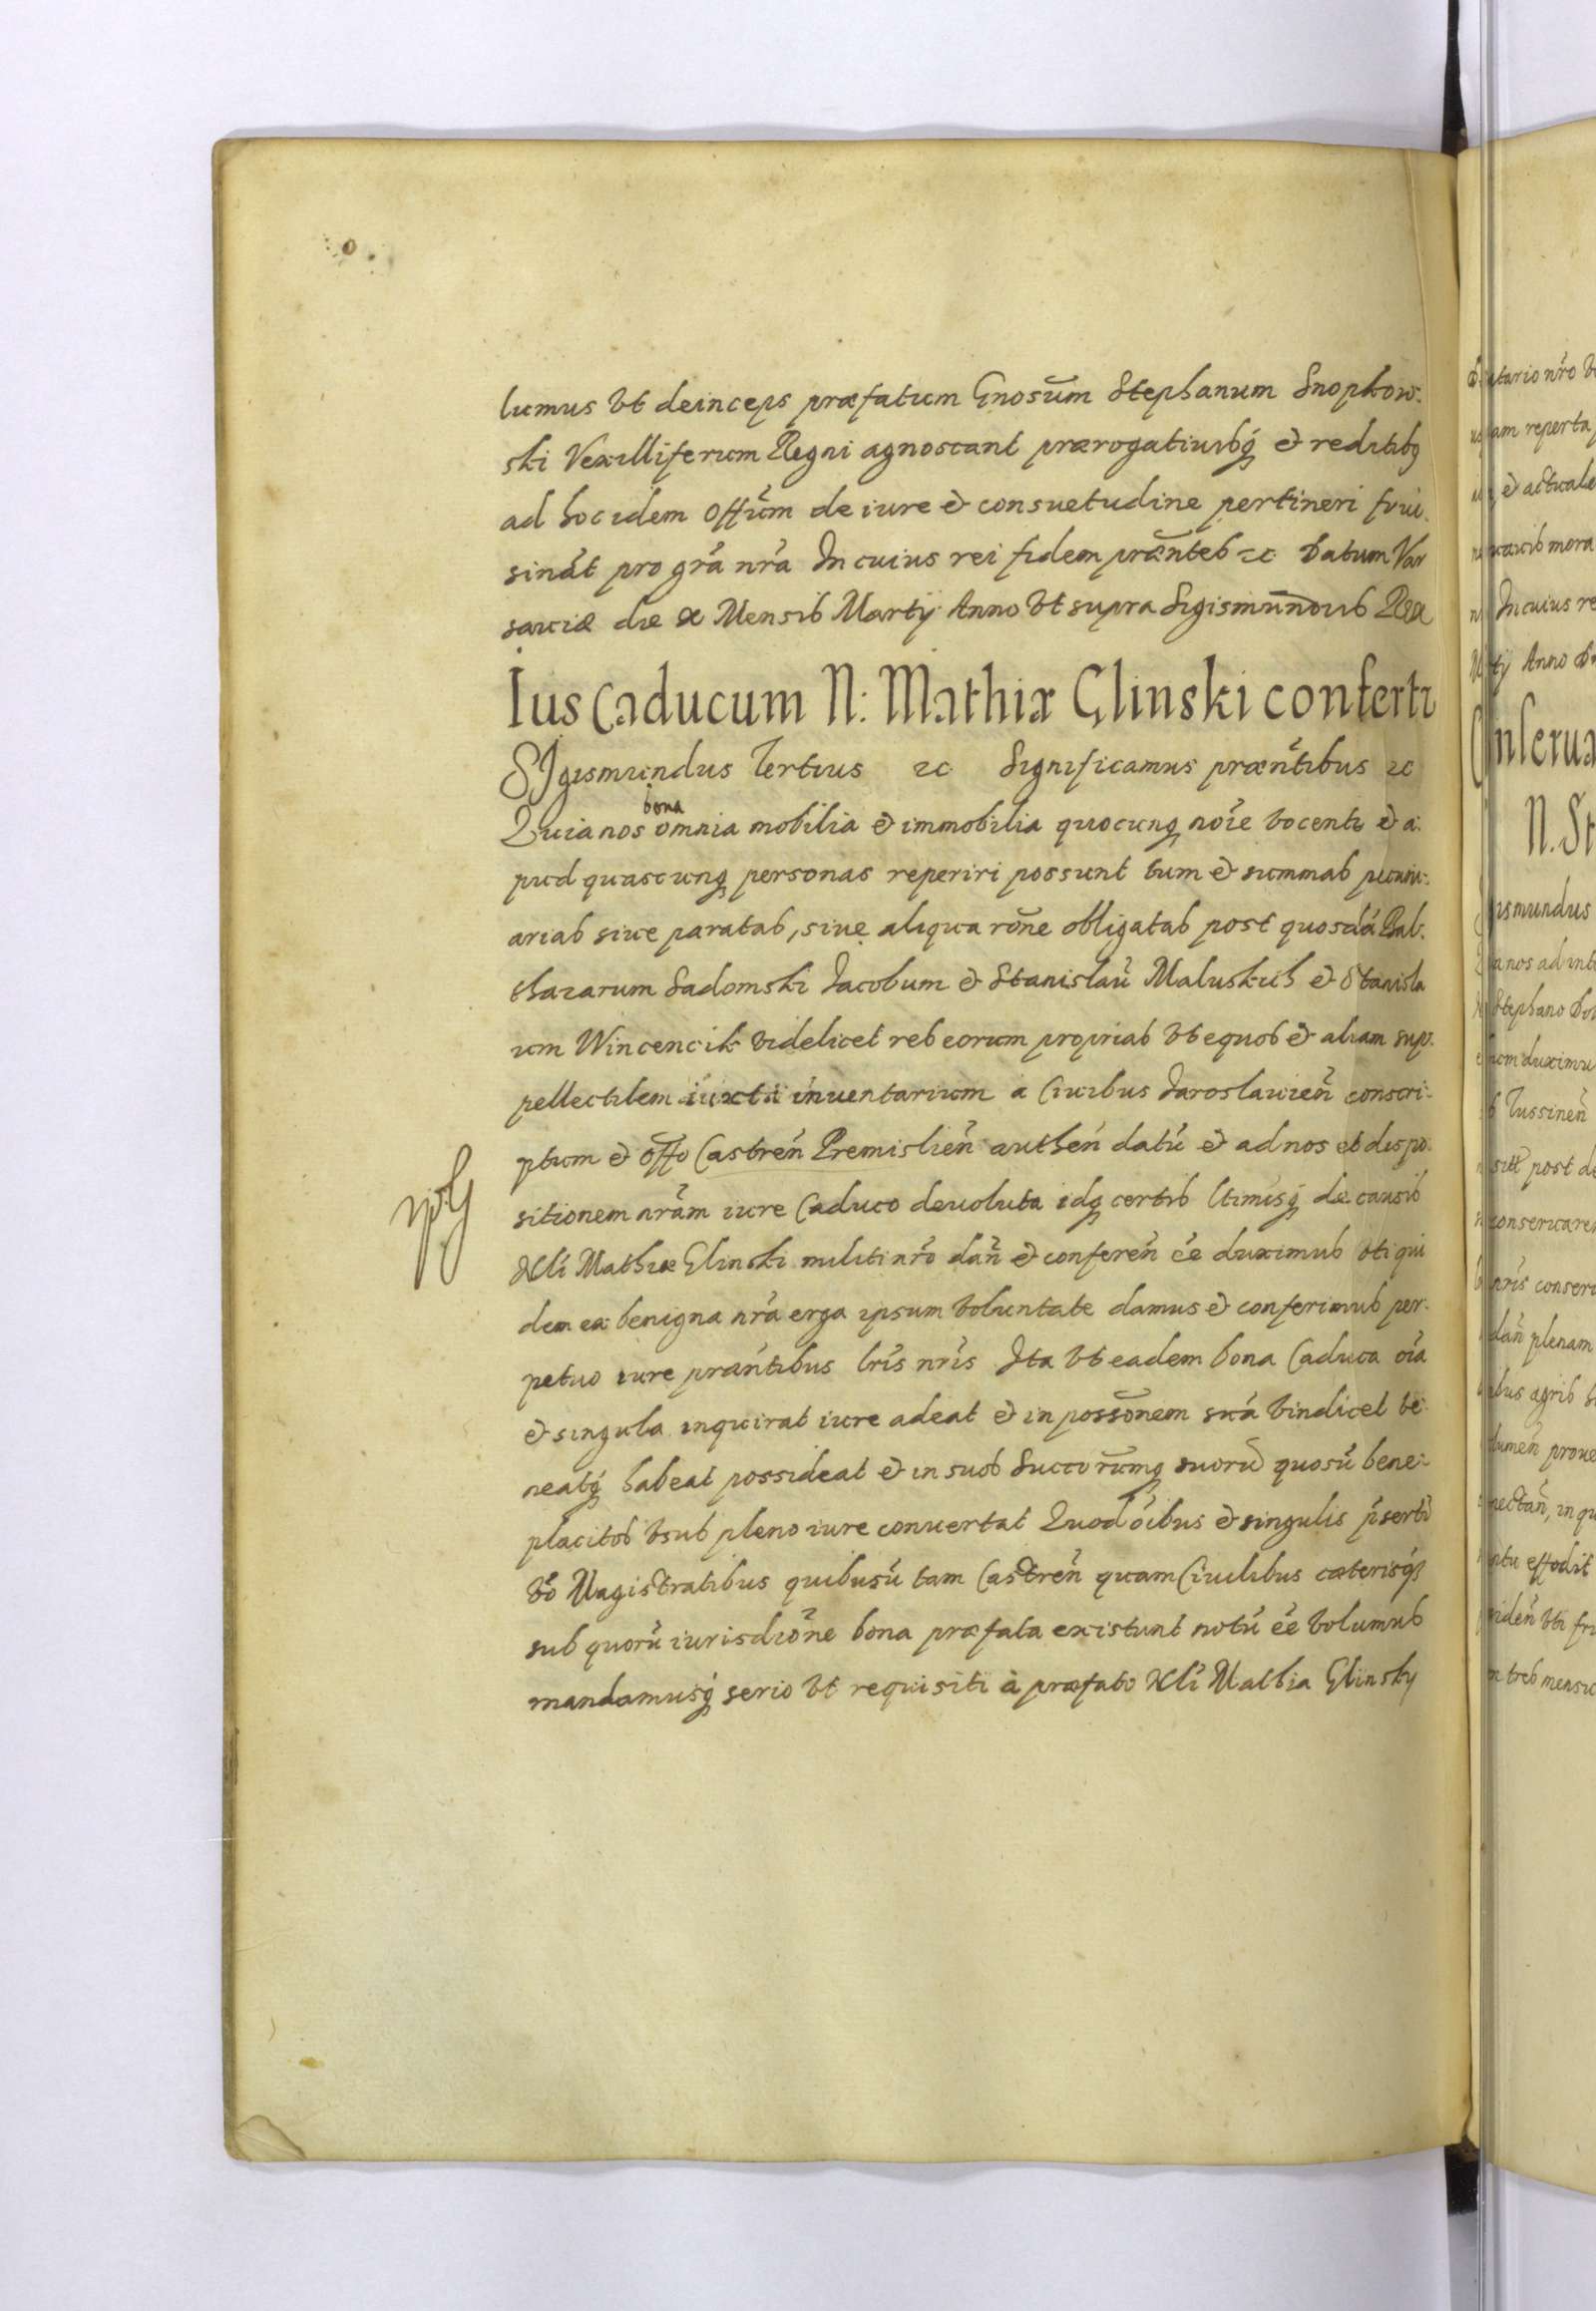 lumus vt deinceps præfatum Gnosum Stephanum Snopkow-
ski Vexilliferum Regni agnoscant prærogatiuisq́ꝫ & reditibꝫ
ad hoc idem Offūm de iure & consuetudine pertineri frui.
sinat pro gr̃a nr̃a In cuius rei fidem præntes ꝛc Datum Var
sauiæ die x Mensis Martij Anno vt supra Sigismundus Rex
Ius Caducum N: Mathiæ Glinski confertr
SIgismundus Tertius ꝛc Significamus præntibus ꝛc
Quia nos bona omnia mobilia & immobilia quocunqꝫ noie vocentr & a-
pud quascunqꝫ personas reperiri possunt tum & summas pecuni-
arias siue paratas, siue aliqua rone obligatas post quosdá Bal-
thazarum Sadomski Jacobum & Stanislaũ Maluskich & Stanisla
um Wincencik videlicet res eorum proprias vt equos & aliam sup-
pellectilem iuxta inuentarium a Ciuibus Jaroslauieñ conscri-
ptum & offo Castreñ Premislieñ autheń datũ & ad nos et dispo-
sitionem nrãm iure Caduco deuoluta idqꝫ certis ltimisqꝫ de causis
Nli Mathiæ Glinski militi nr̃o dañ & confereñ ẽe duximus vti qui
dem ex benigna nr̃a erga ipsum voluntate damus & conferimus per-
petuo iure præntibus lris nris Ita vt eadem bona Caduca oia
& singula inquirat iure adeat & in possonem suá vindicet te-
neatqꝫ habeat possideat & in suos Succorumqꝫ suorũ quosũ bene-
placitos vsus pleno iure conuertat Quod oibus & singulis psertĩ
vo Magistratibus quibusũ tam Castreñ quam Ciuilibus cæterisqꝫ
sub quorũ iurisdione bona præfata existunt notũ ẽe volumus
mandamusqꝫ serio vt requisiti à præfato Nli Mathia Glinsky